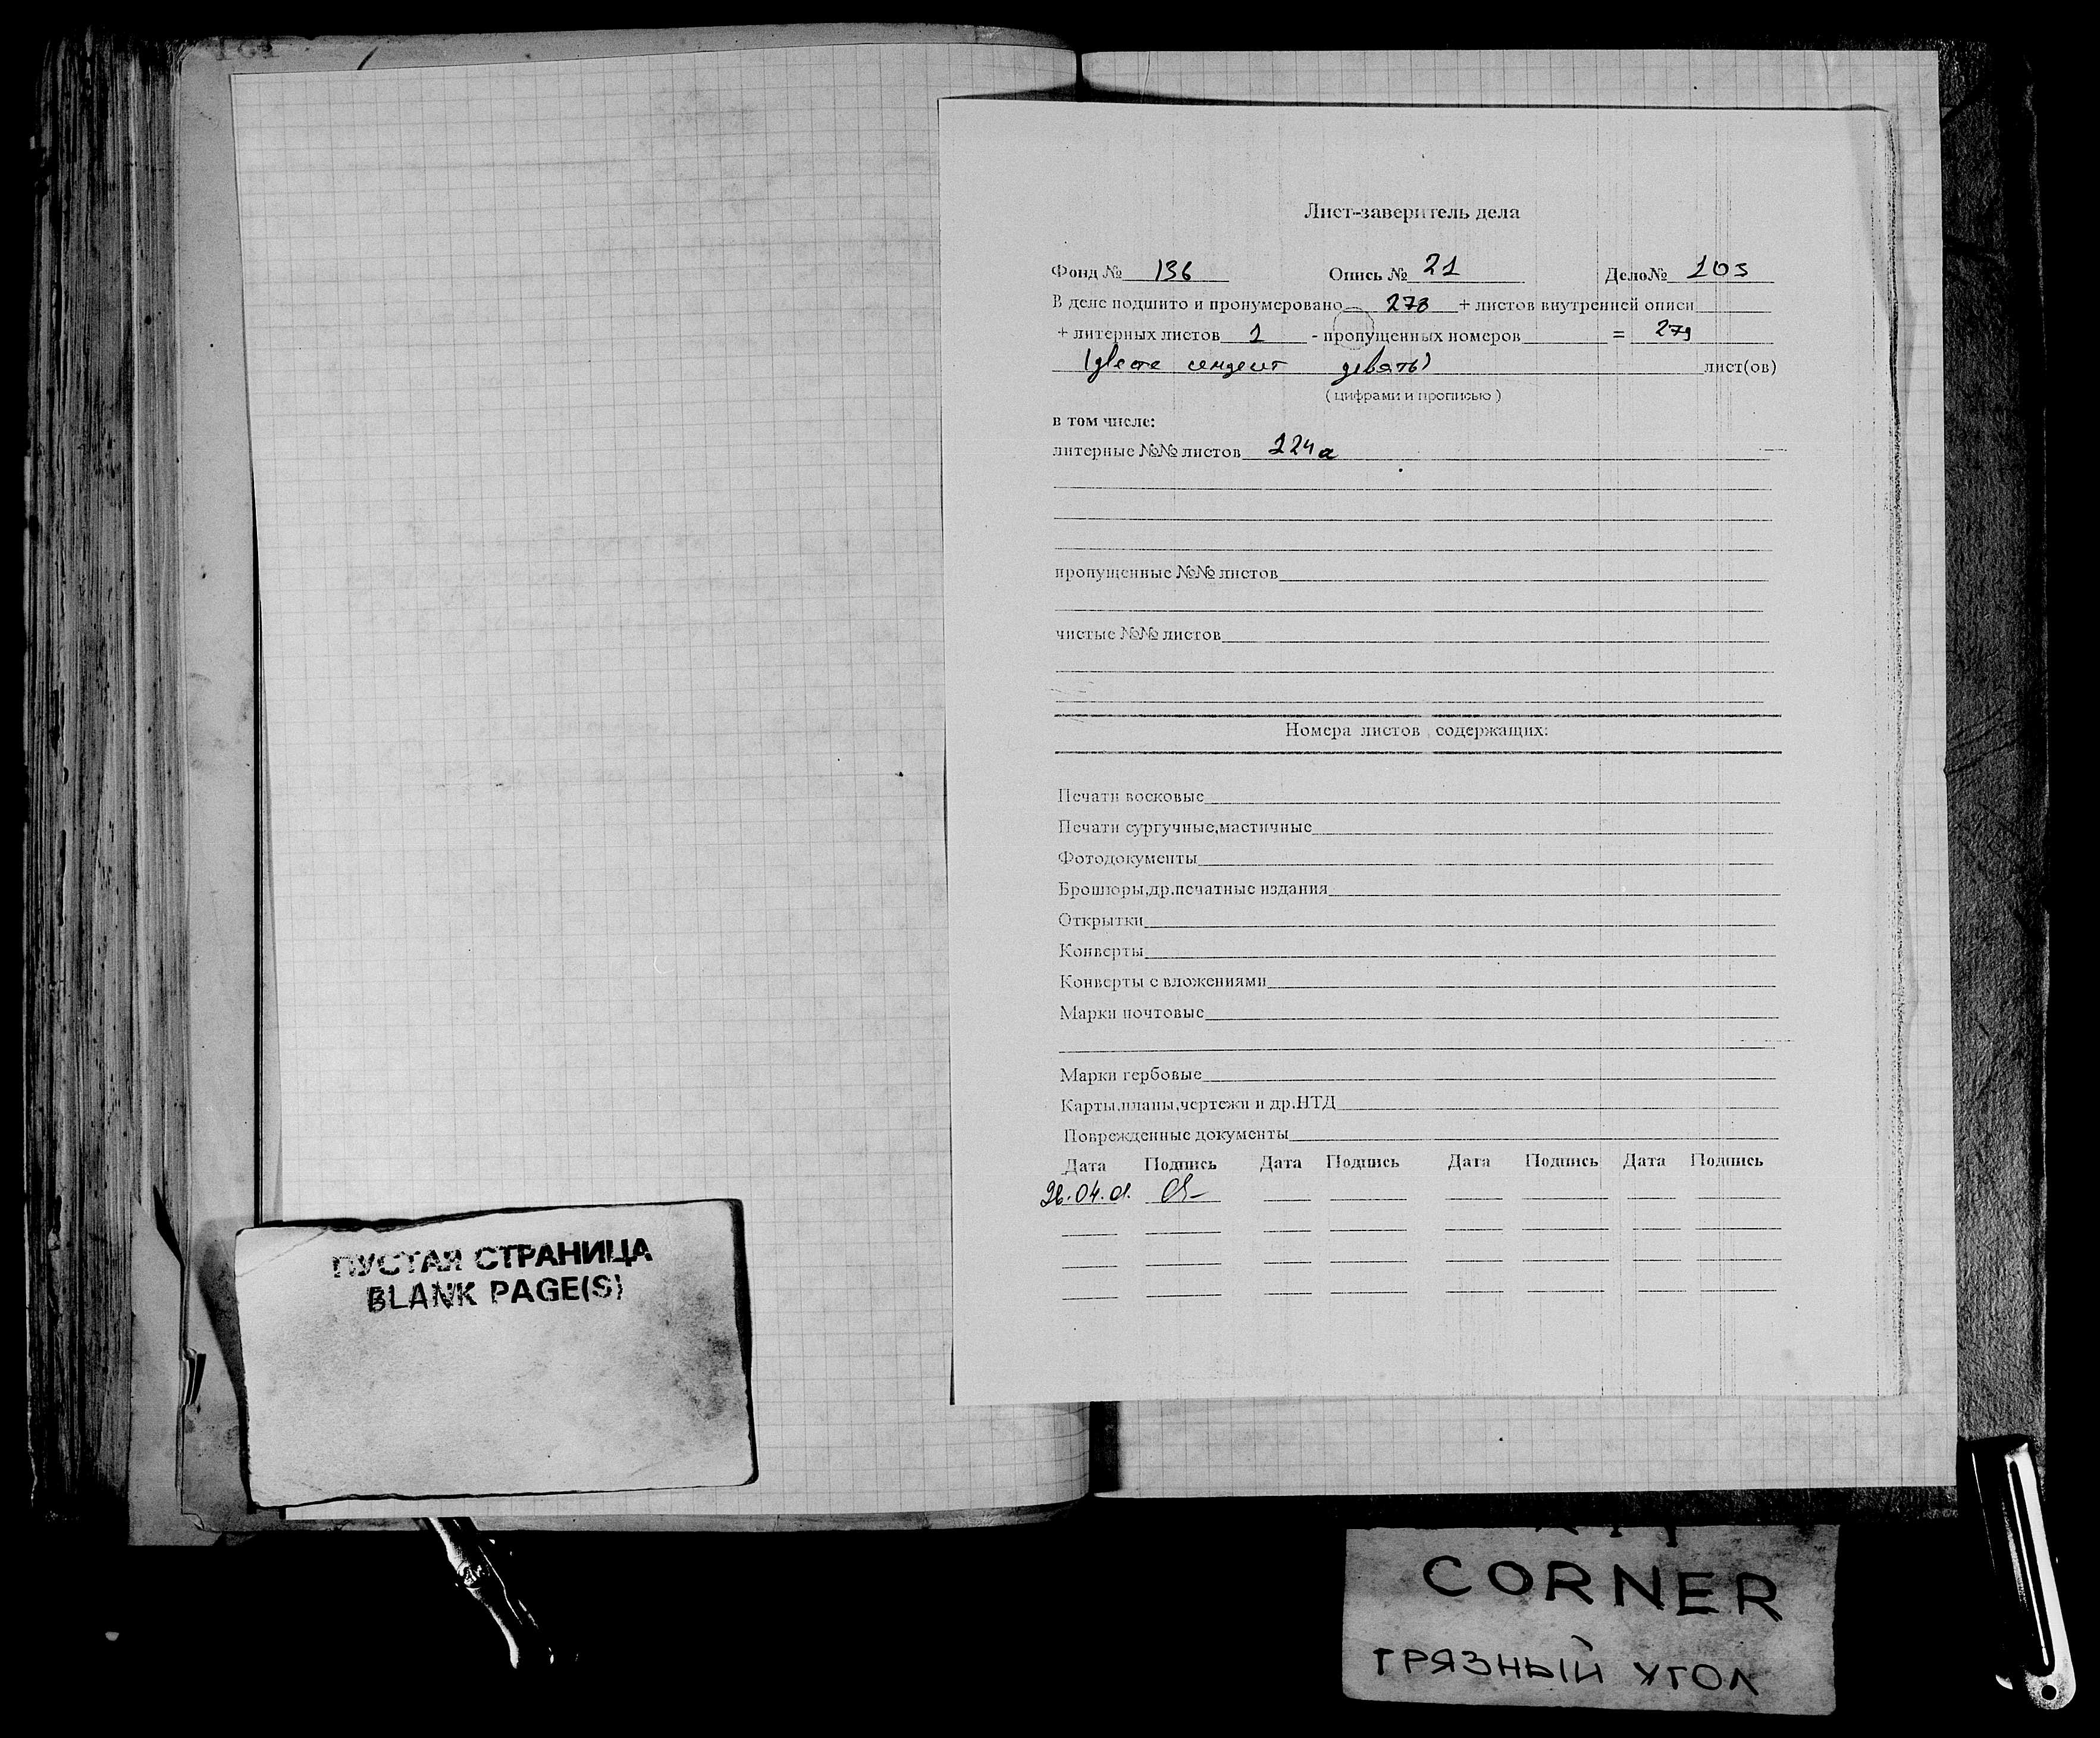 ПУСТАЯ СТРАНИЦА
BLANK PAGE(S)
Лист-заверитель дела
Фонд № 136 Опись № 21 Дело№ 103
В деле подшито и пронумеровано 278 + листов внутренней описи
+ литерных листов 1 - пропущенных номеров = 279
(двести семдесят девять) лист(ов)
(цифрами и прописью)
в том числе:
литерные №№ листов 224а
пропущенные №№ листов
чистые №№ листов
Номера листов содержащих:
Печати восковые
Печати сургучные,мастичные
Фотодокументы
Брошюры,др.печатные издания
Открытки
Конверты
Конверты с вложениями
Марки почтовые
Марки гербовые
Карты,планы,чертежи и др.НТД
Поврежденные документы
Дата Подпись Дата Подпись Дата Подпись Дата Подпись
26.04.01.
CORNER
ГРЯЗНЫЙ УГОЛ